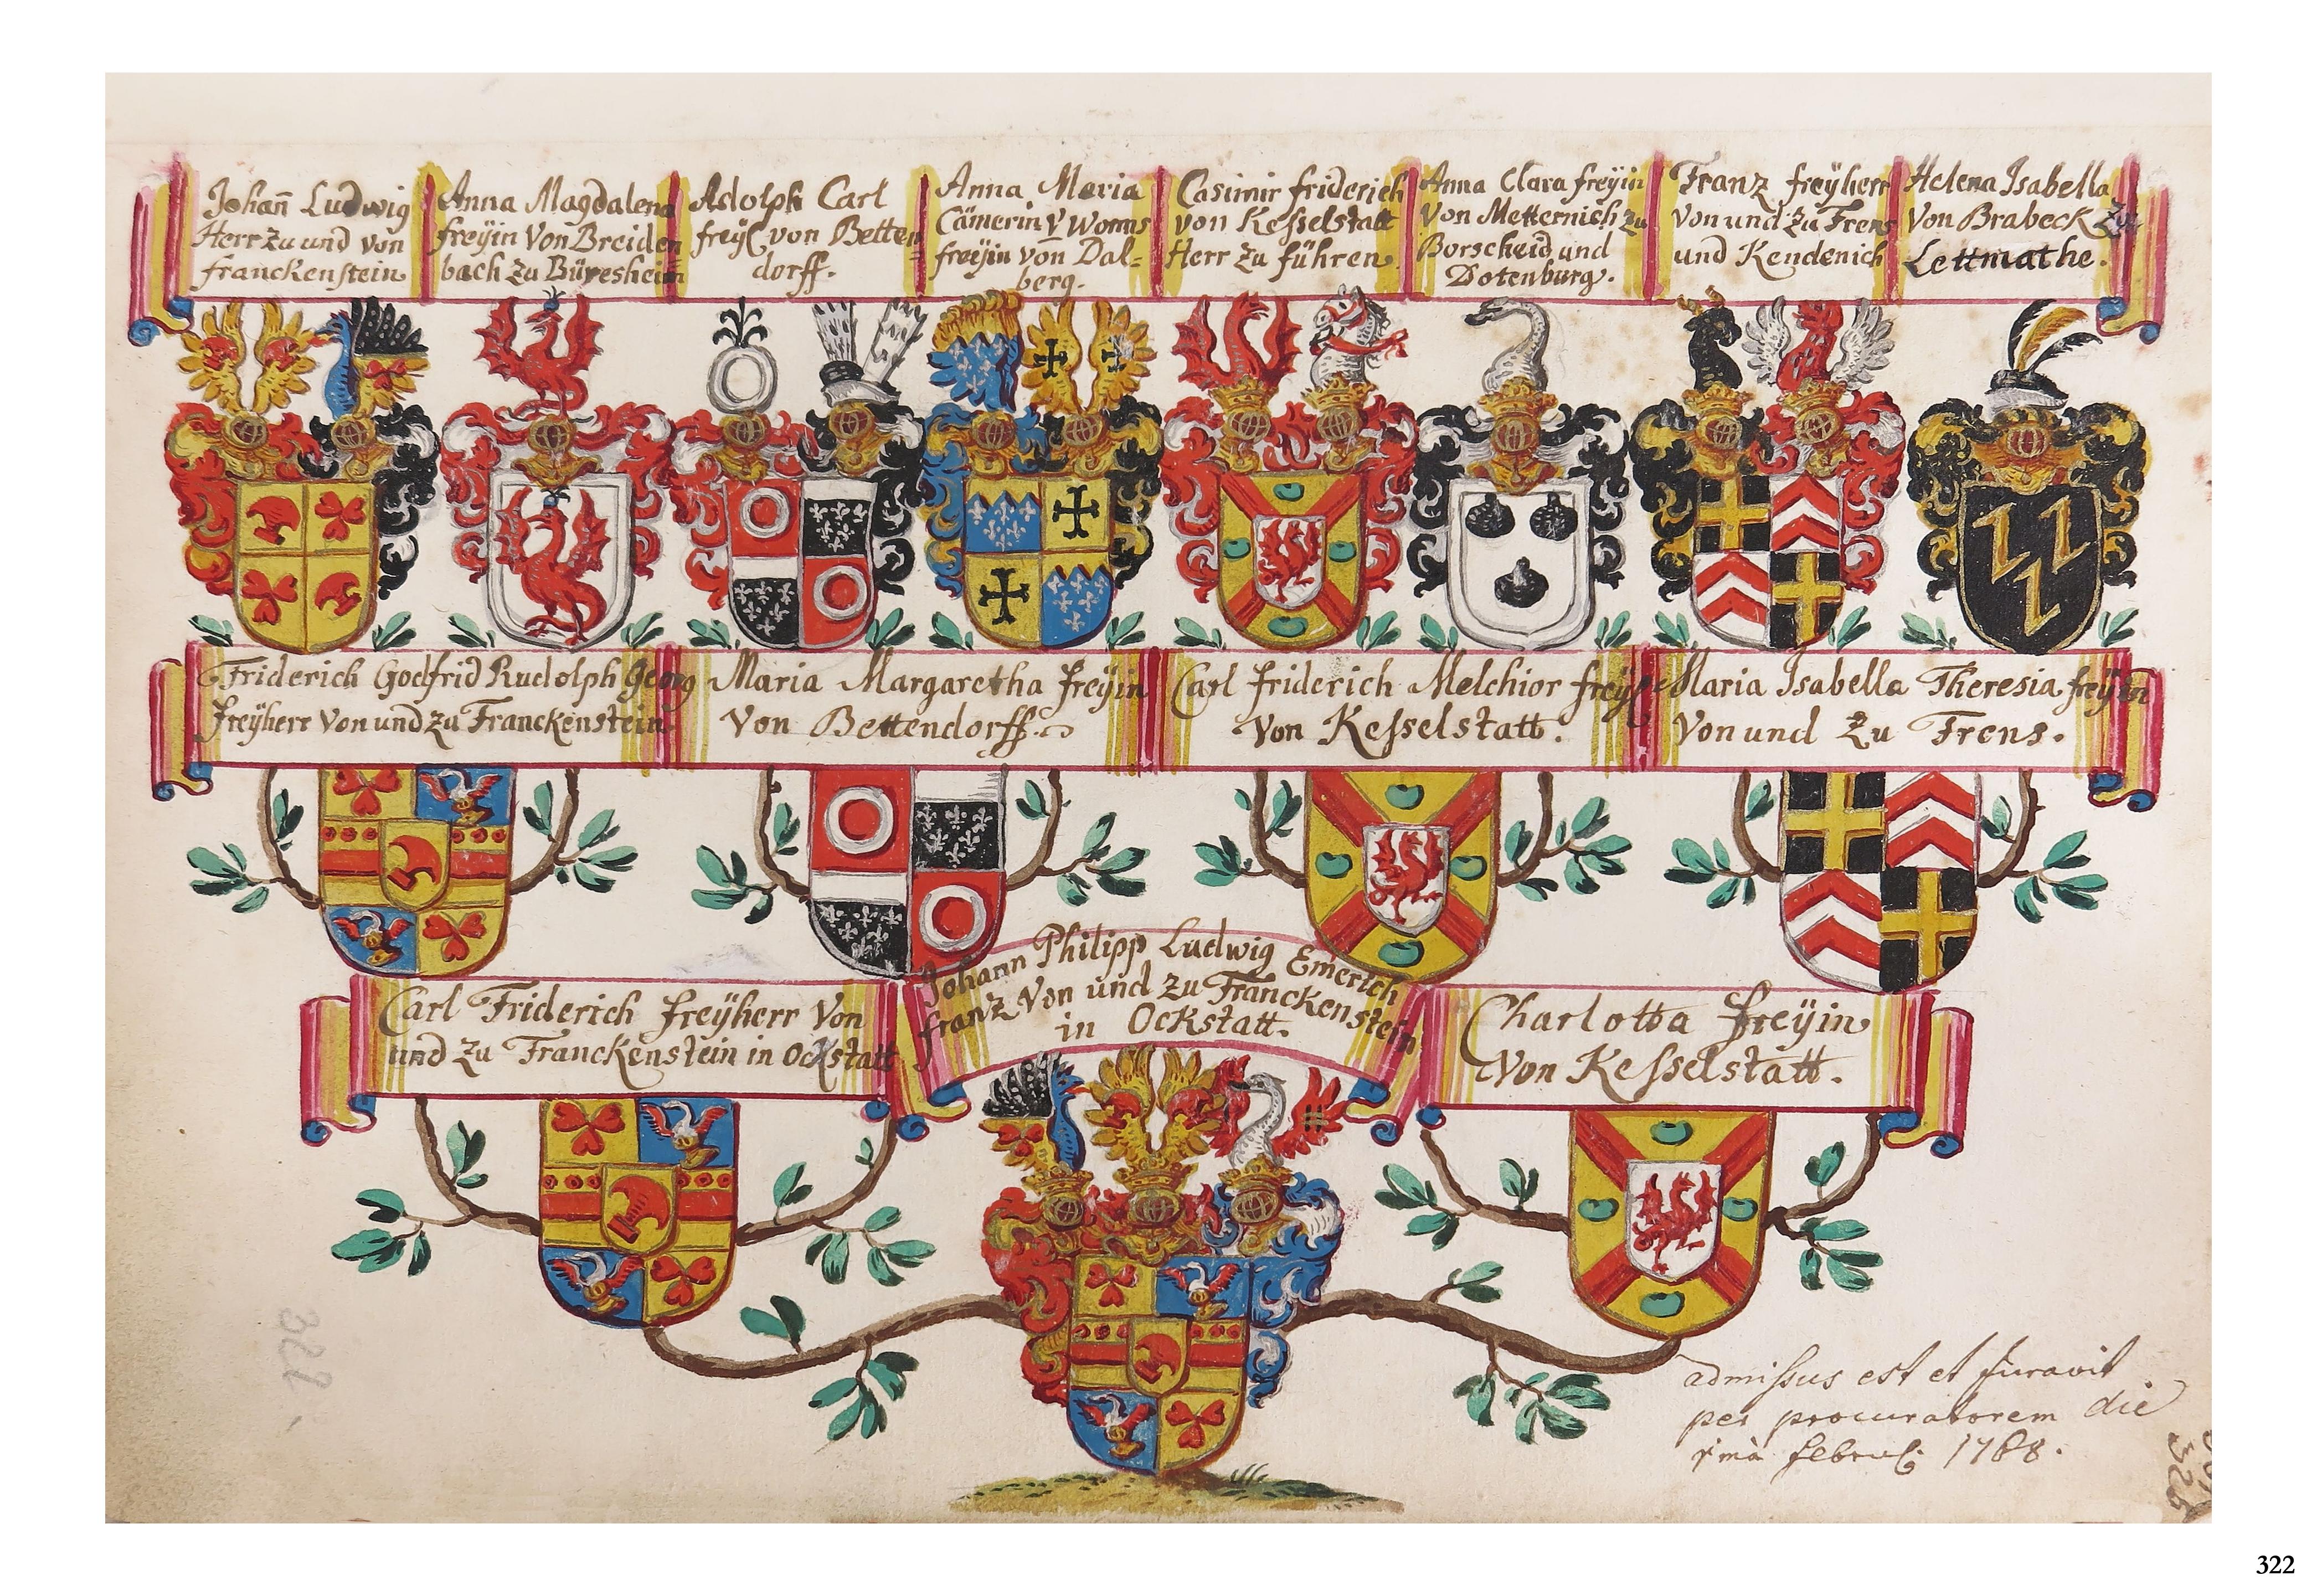 Johan̄ Ludwig
Herr zu und von
franckenstein
Anna Magdalena
freÿin Von Breiden
bach zu Büresheim
Adolph Carl
freÿ von Betten=
dorff.
Anna Maria
Cämerin V Worms
freÿin von Dal=
berg.
Casimir friderich
von Kesselstatt
Herr zu führen
Anna Clara freÿin
von Metternich zu
Borscheid und
Dotenburg.
Franz freÿherr
von und zu Frens
und Kendenich
Helena Isabella
von Brabeck zu
Lettmathe.
Friderich Godfrid Rudolph Georg
freÿherr Von und zu Franckenstein
Maria Margaretha freÿin
Von Bettendorff.
Carl friderich Melchior freÿ
Von Kesselstatt.
Maria Isabella Theresia freÿin
Von und zu Frens.
Carl Friderich freÿherr Von
und zu Franckenstein in Ockstatt
Johann Philipp Ludwig Emerich
franz Von und zu Franckenstein
in Ockstatt.
Charlotta freÿin
Von Kesselstatt.
admissus est et juravit
per procuratorem die
febru 1768.
322